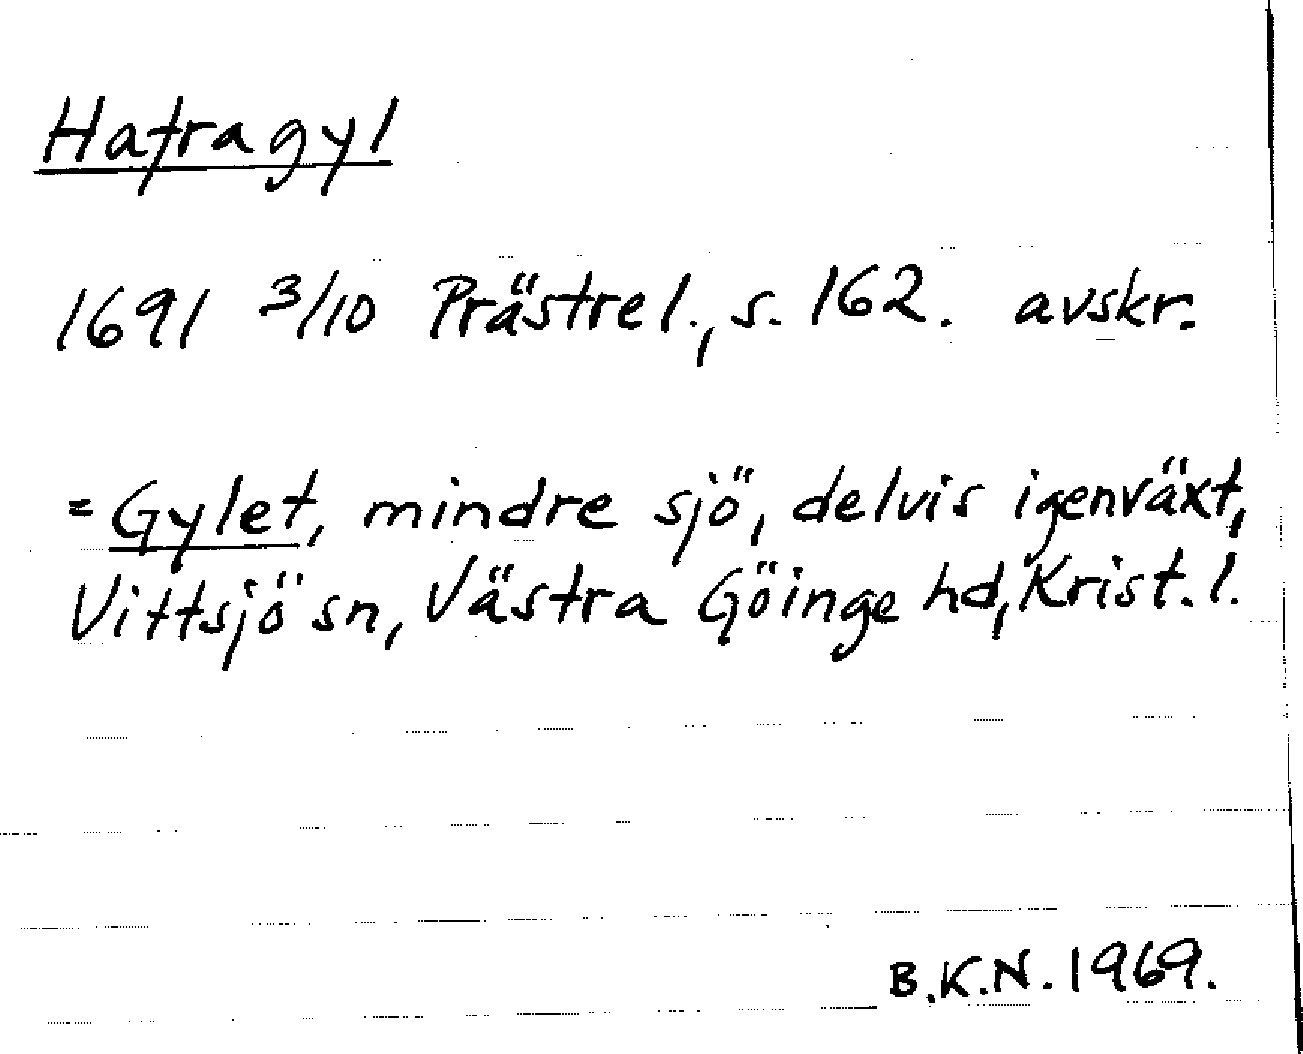 Hafragyl
1691 3/10 Prästrel., s. 162. avskr.
= Gylet, mindre sjö, delvis igenväxt,
Vittsjö sn, Västra Göinge hd, Krist. l.
B.K.N. 1969.